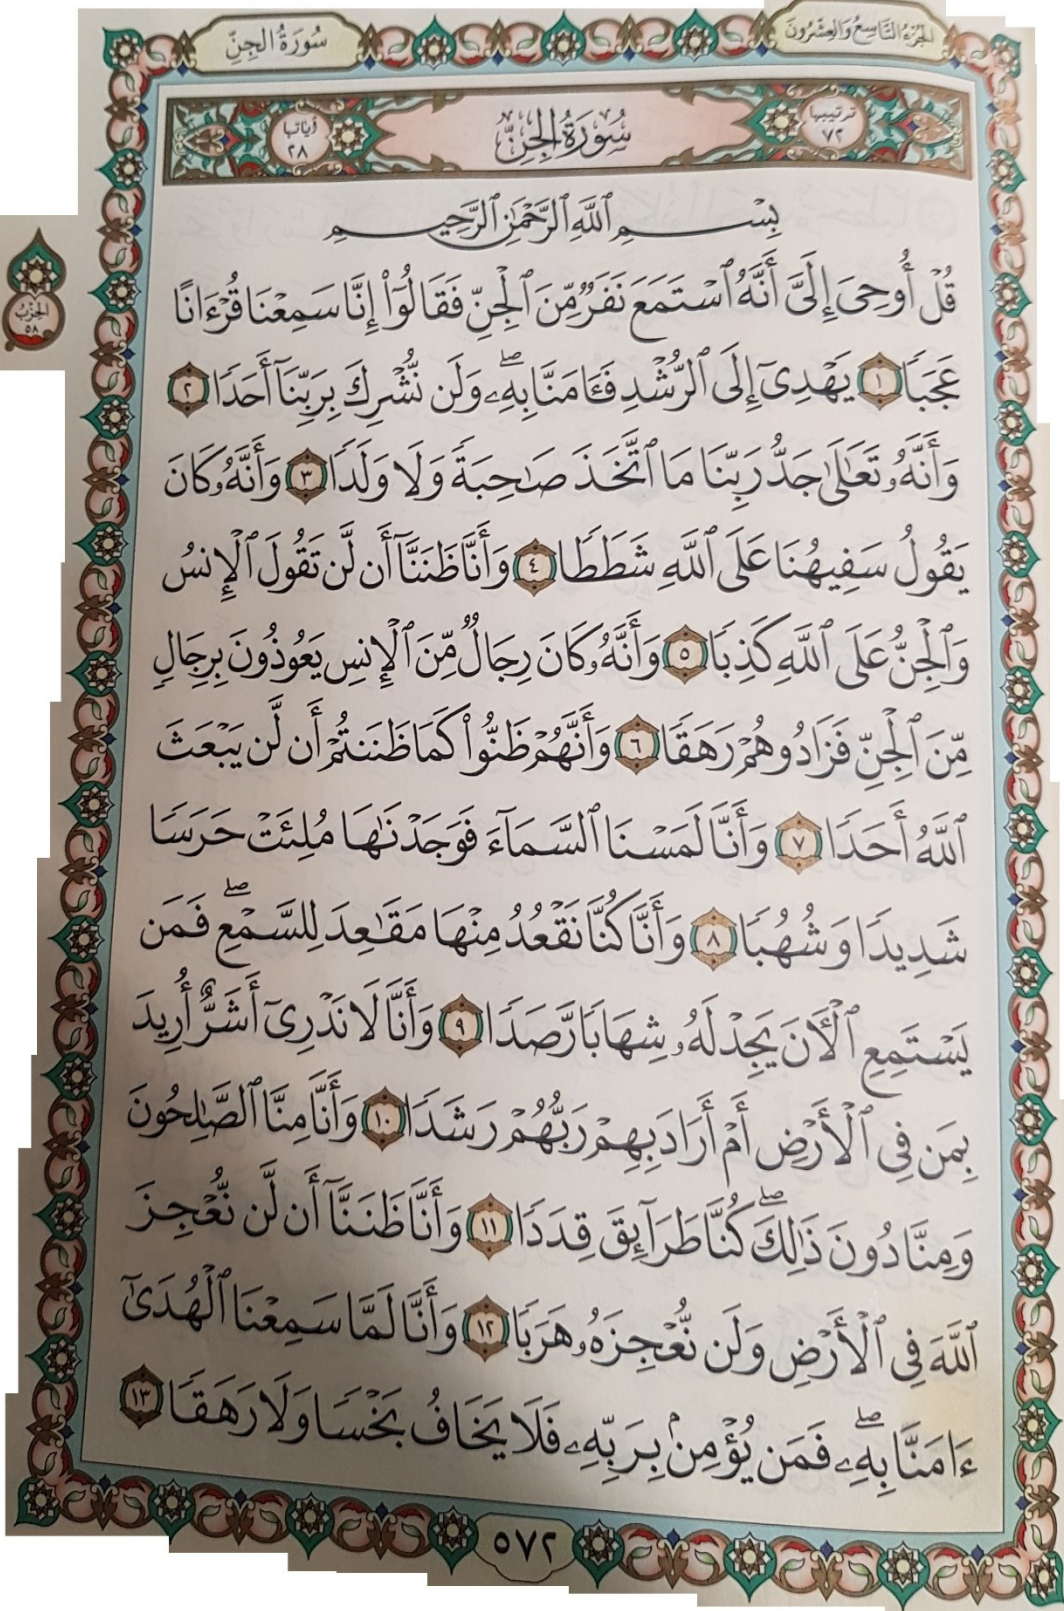 الجزء التاسع والعشرون
سورة الجن
ترتيبها ٧٢
سُورَةُ الجِنِّ
آياتها ٢٨
بِسْمِ ٱللَّهِ ٱلرَّحْمَٰنِ ٱلرَّحِيمِ
قُلْ أُوحِىَ إِلَىَّ أَنَّهُ ٱسْتَمَعَ نَفَرٌ مِّنَ ٱلْجِنِّ فَقَالُوٓا۟ إِنَّا سَمِعْنَا قُرْءَانًا
عَجَبًا ١ يَهْدِىٓ إِلَى ٱلرُّشْدِ فَـَٔامَنَّا بِهِۦ ۖ وَلَن نُّشْرِكَ بِرَبِّنَآ أَحَدًا ٢
وَأَنَّهُۥ تَعَٰلَىٰ جَدُّ رَبِّنَا مَا ٱتَّخَذَ صَٰحِبَةً وَلَا وَلَدًا ٣ وَأَنَّهُۥ كَانَ
يَقُولُ سَفِيهُنَا عَلَى ٱللَّهِ شَطَطًا ٤ وَأَنَّا ظَنَنَّآ أَن لَّن تَقُولَ ٱلْإِنسُ
وَٱلْجِنُّ عَلَى ٱللَّهِ كَذِبًا ٥ وَأَنَّهُۥ كَانَ رِجَالٌ مِّنَ ٱلْإِنسِ يَعُوذُونَ بِرِجَالٍ
مِّنَ ٱلْجِنِّ فَزَادُوهُمْ رَهَقًا ٦ وَأَنَّهُمْ ظَنُّوا۟ كَمَا ظَنَنتُمْ أَن لَّن يَبْعَثَ
ٱللَّهُ أَحَدًا ٧ وَأَنَّا لَمَسْنَا ٱلسَّمَآءَ فَوَجَدْنَٰهَا مُلِئَتْ حَرَسًا
شَدِيدًا وَشُهُبًا ٨ وَأَنَّا كُنَّا نَقْعُدُ مِنْهَا مَقَٰعِدَ لِلسَّمْعِ ۖ فَمَن
يَسْتَمِعِ ٱلْـَٔانَ يَجِدْ لَهُۥ شِهَابًا رَّصَدًا ٩ وَأَنَّا لَا نَدْرِىٓ أَشَرٌّ أُرِيدَ
بِمَن فِى ٱلْأَرْضِ أَمْ أَرَادَ بِهِمْ رَبُّهُمْ رَشَدًا ١٠ وَأَنَّا مِنَّا ٱلصَّٰلِحُونَ
وَمِنَّا دُونَ ذَٰلِكَ ۖ كُنَّا طَرَآئِقَ قِدَدًا ١١ وَأَنَّا ظَنَنَّآ أَن لَّن نُّعْجِزَ
ٱللَّهَ فِى ٱلْأَرْضِ وَلَن نُّعْجِزَهُۥ هَرَبًا ١٢ وَأَنَّا لَمَّا سَمِعْنَا ٱلْهُدَىٰٓ
ءَامَنَّا بِهِۦ ۖ فَمَن يُؤْمِنۢ بِرَبِّهِۦ فَلَا يَخَافُ بَخْسًا وَلَا رَهَقًا ١٣
الحزب ٥٨
٥٧٢